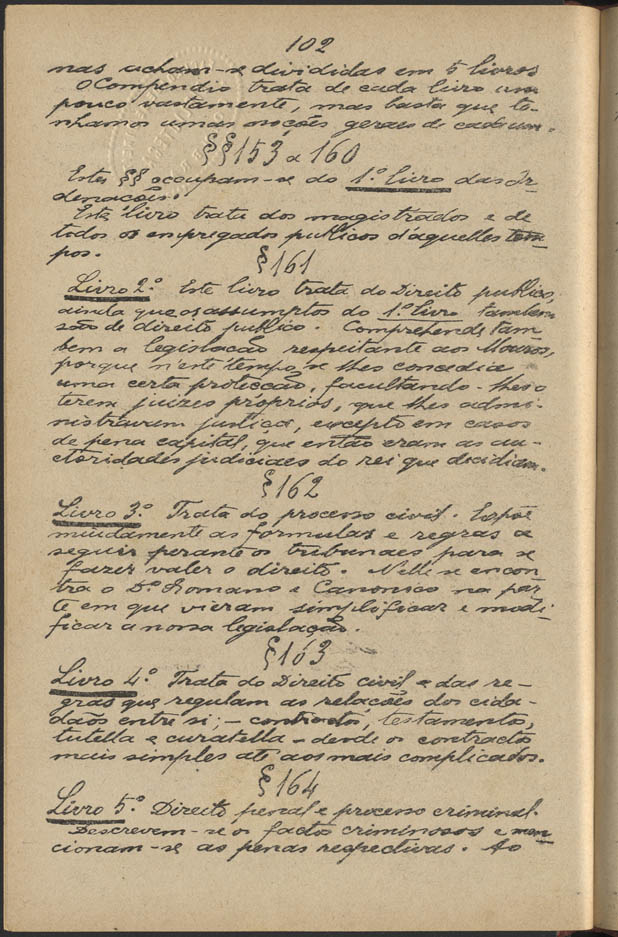 102
nas acham-se divididas em 5 livros
O Compendio trata de cada livro um
pouco vastamente, mas basta que te-
nhamos umas noções geraes de cada um.
§§153 a 160
Estes §§ occupam-se do 1º livro das Or-
denações.
Este livro trata dos magistrados e de
todos os empregados publicos d'aquelles tem-
pos.
§161
Livro 2º. Este livro trata do Direito publico,
ainda que os assumptos do 1º livro tambem
são de direito publico. Comprehende tam
bem a legislação respeitante aos Mouros,
porque n'este tempo se lhes concedia
uma certa protecção, facultando-lhes o
terem juizes proprios, que lhes admi-
nistravam justiça, excepto em casos
de pena capital, que então eram as au-
ctoridades judiciaes do rei que decidiam.
§162
Livro 3º. Trata do processo civil. Expõe
miudamente as formulas e regras a
seguir perante os tribunaes para se
fazer valer o direito. N'elle se encon
tra o Dº. Romano e Canonico na par
te em que vieram simplificar e modi-
ficar a nossa legislação.
§163
Livro 4º. Trata do Direito civil e das re-
gras que regulam as relações dos cida-
dãos entre si; - contractos, testamento,
tutella e curatella - desde os contractos
mais simples até aos mais complicados.
§164
Livro 5º. Direito penal e processo criminal.
Descrevem-se os factos criminosos e men
cionam-se as penas respectivas. Ao